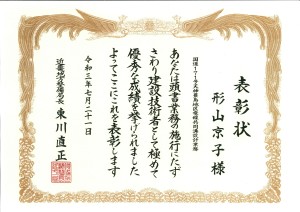 表彰状
形山京子様
あなたは頭書業務の施行にたず
さわり建設技術者として極めて
優秀な成績を挙げられました
よってここにこれを表彰します
令和三年七月二十一日
近畿地方整備局長 東川直正